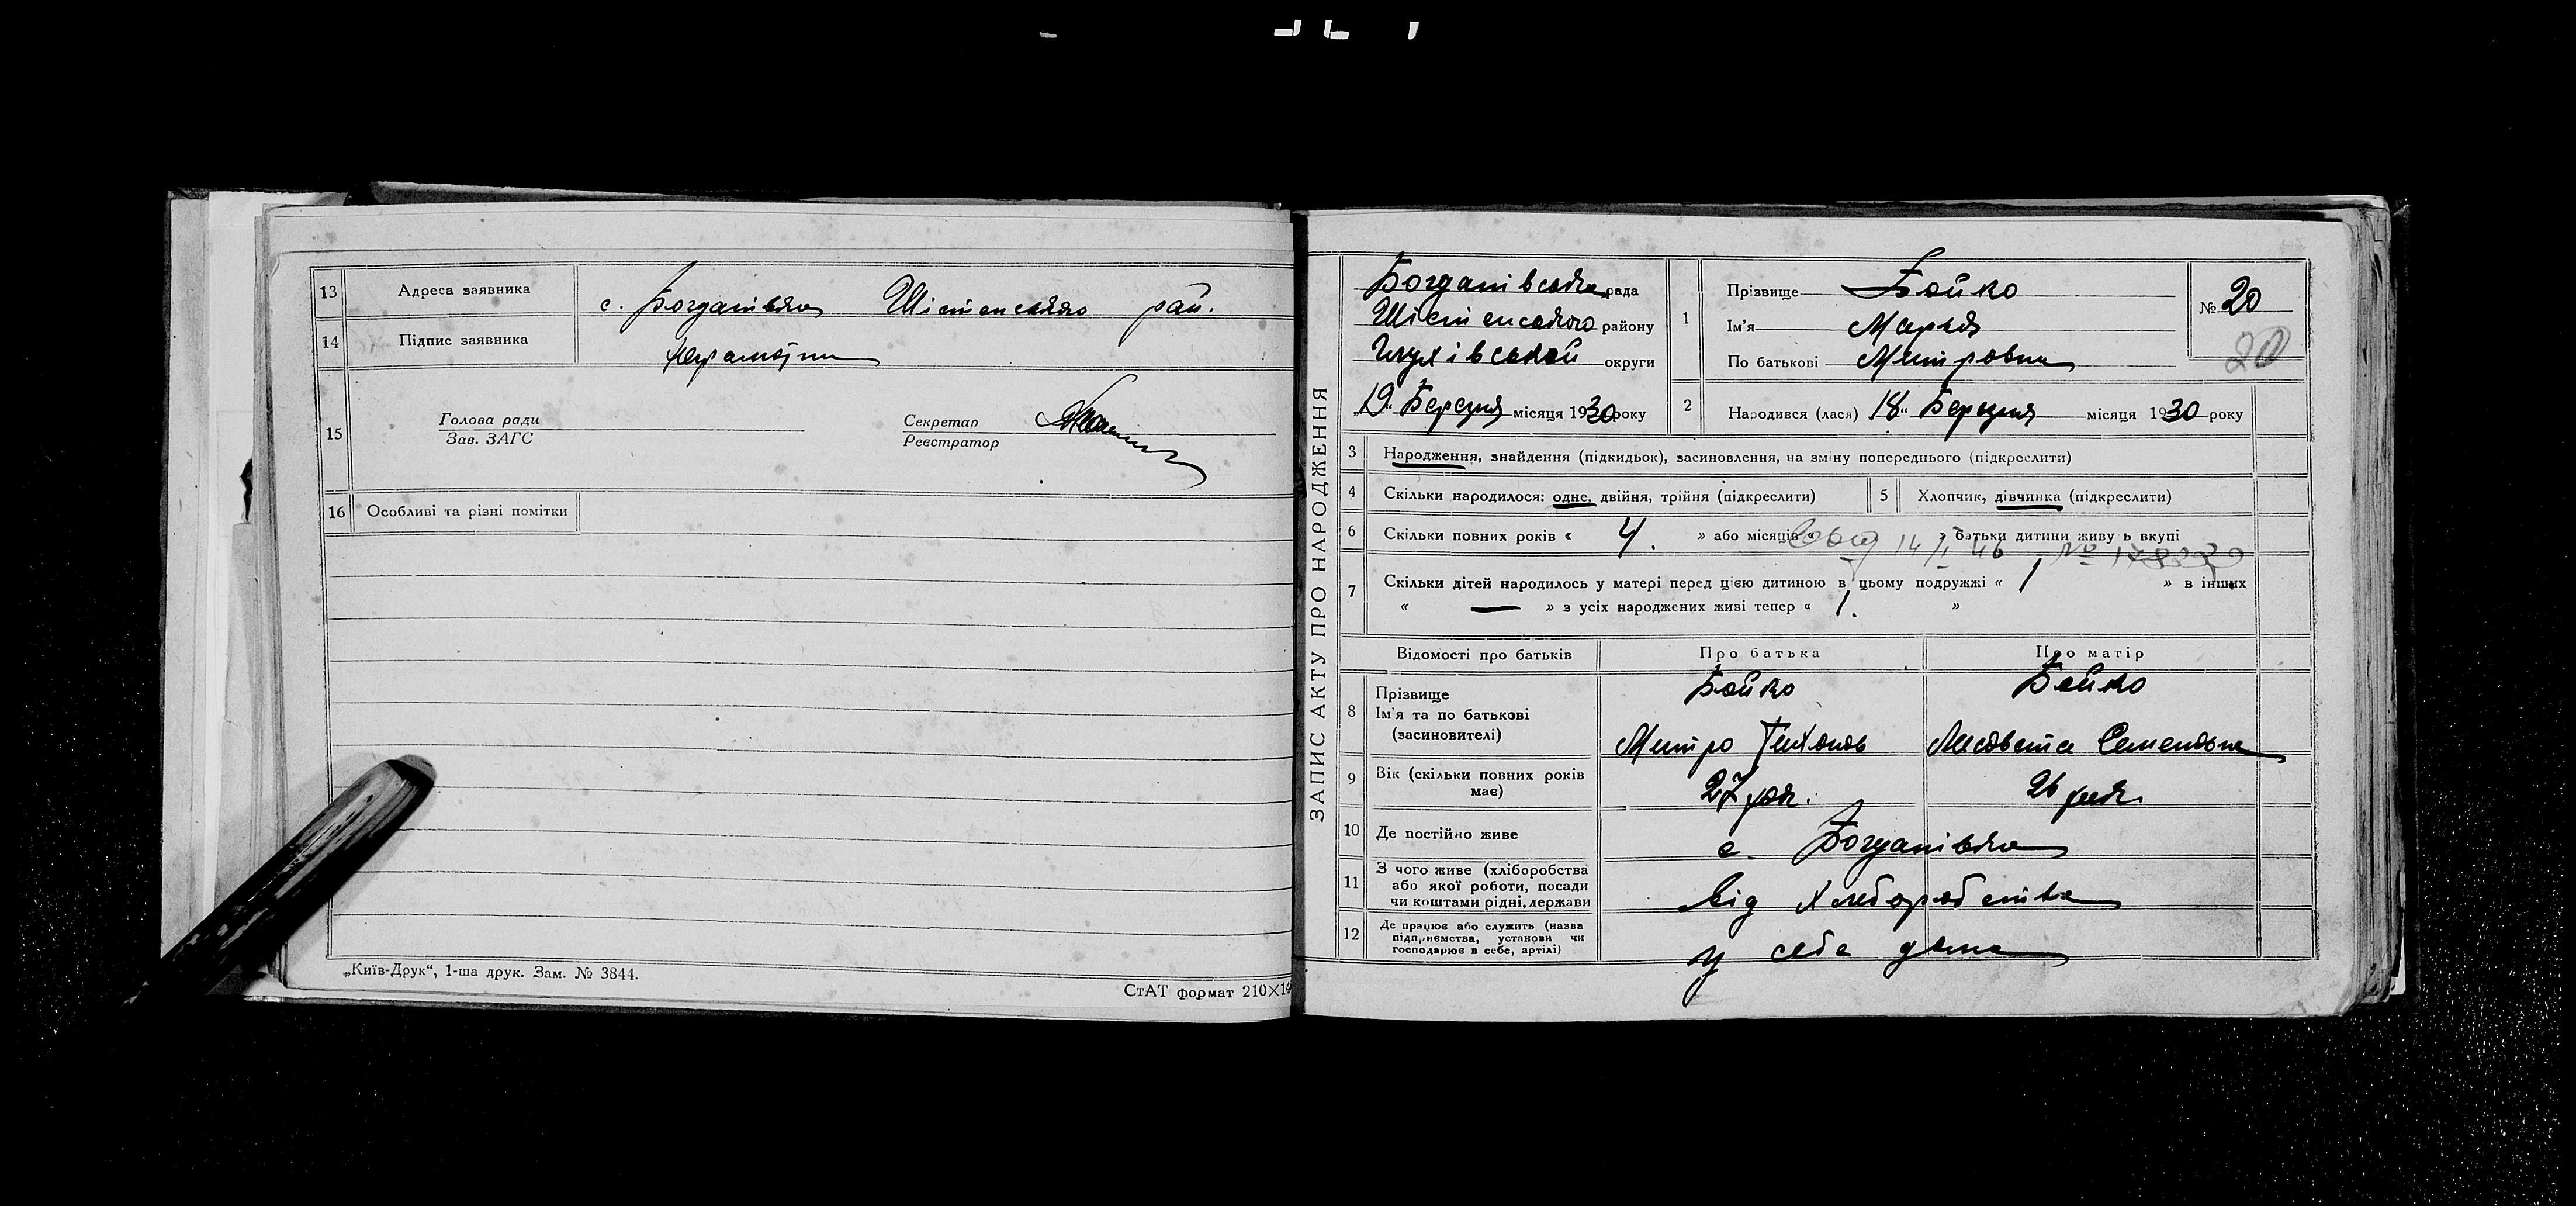 13 Адреса заявника с. Богданівка Шістенського рай.
14 Підпис заявника
15 Голова ради
Зав. ЗАГС
Секретар
Реєстратор
16 Особливі та різні помітки
„Київ-Друк“, 1-ша друк. Зам. № 3844.
СтАТ формат 210×14
ЗАПИС АКТУ ПРО НАРОДЖЕННЯ
Богданівська рада
Шістенського району
Глухівської округи
„19“ Березня місяця 1930 року
1 Прізвище Бойко
Ім'я Марья
По батькові Митровна
№ 20
20
2 Народився (лася) 18 „ Березня місяця 1930 року
3 Народження, знайдення (підкидьок), засиновлення, на зміну попереднього (підкреслити)
4 Скільки народилося: одне, двійня, трійня (підкреслити)
5 Хлопчик, дівчинка (підкреслити)
6 Скільки повних років « 4. » або місяців « » батьки дитини живуть вкупі
14/I 46 №
7 Скільки дітей народилось у матері перед цією дитиною в цьому подружжі « 1 » в інших
« — » з усіх народжених живі тепер « 1. »
Відомості про батьків Про батька Про матір
8 Прізвище
Ім'я та по батькові
(засиновителі)
Бойко
Митро Тихонов
Бойко
Лисавета Семеновна
9 Вік (скільки повних років
має)
27 рок.
26 рок.
10 Де постійно живе с. Богданівка
11 З чого живе (хліборобства
або якої роботи, посади
чи коштами рідні, держави
від хлеборобства
12 Де працює або служить (назва
підприємства, установи чи
господарює в себе, артілі)
у себе дома